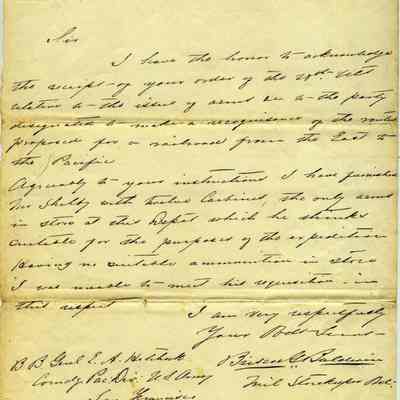 Sir
I have the honor to acknowledge
the receipt of your order of the 28th Ult
relative to the issue of arms &c to the party
designated to make a recognisance of the route
proposed for a railroad from the East to
the Pacific
Agreeably to your instructions I have furnished
Mr Shelby with twelve Carbines, the only arms
in store at this Depot which he thinks
suitable for the purposes of the expedition
Having no suitable ammunition in store
I was unable to meet his requisition in
this respect
I am very respectfully
Your Obdt Servt
B B Genl E. A. Hitchcock
Comdg Pac Div. U S Army
San Francisco
Baldwin
Mil Storekeeper